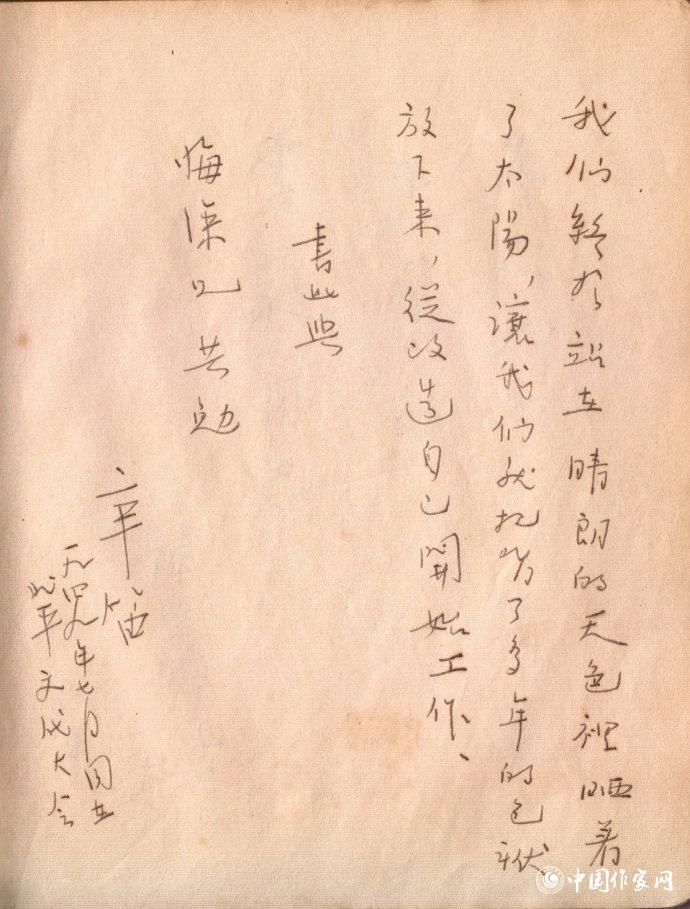 我们終於站在晴朗的天色裡晒着
了太陽，讓我们就把背了多年的包袱
放下来，從改造自己開始工作、
書此與
兄共勉
辛笛
一九四九年七月同在
北平文代大会
中国作家网